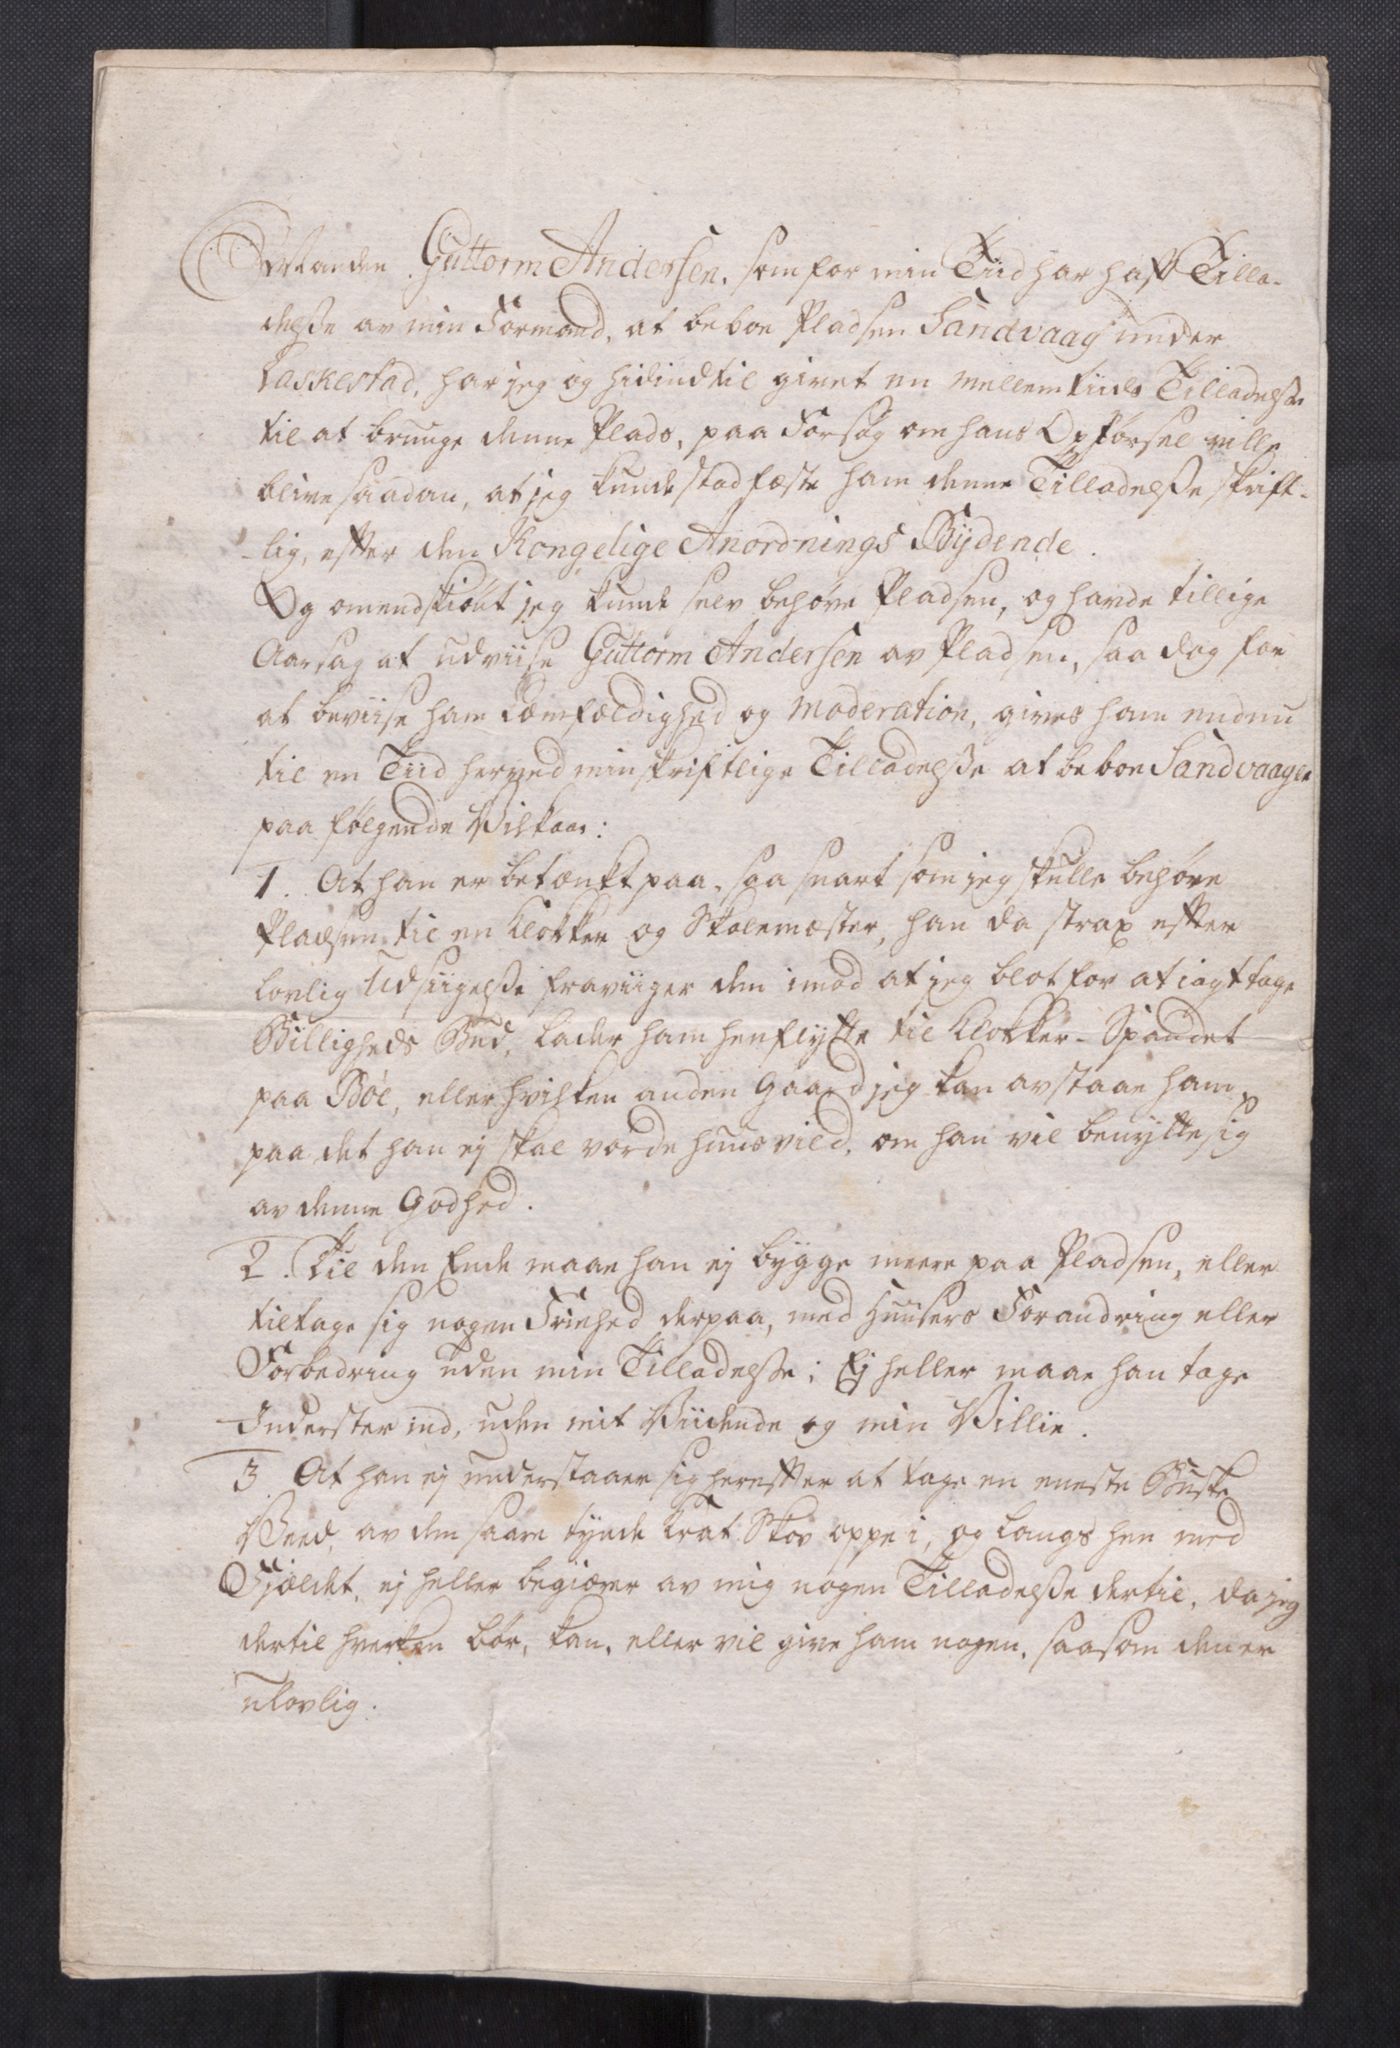 Guttorm Andersen, som for min Tiid har haft Tilla-
delße av min Formand, at beboe Pladsen Sandvaag under
Laskestad, har jeg og hidindtil givet en mellemtiids Tilladelße
til at bruuge denne Plads, paa Forsøg om hans Opførsel ville
blive saadan, at jeg kunde stadfæste ham denne Tilladelße skrift-
-lig, efter den Kongelige Anordnings Bydende.
Og omendskiønt jeg kunde selv behøve Pladsen, og havde tillige
Aarsag at udviise Guttorm Andersen av Pladsen, saa dog for
at beviise ham Lemfældighed og Moderation, gives ham endnu
til en Tiid herved min skriftlige Tilladelße at beboe Sandvaagen
paa følgende Vilkaar:
1. At han er betænkt paa, saa snart som jeg skulle behøve
Pladsen til en Klokker og Skolemæster, han da strax efter
lovlig Udsiigelße fraviiger den imod at jeg blot for at iagttage
Billigheds Bud, lader ham henflytte til Klokker-Spandet
paa Bøe, eller hvilken anden Gaard jeg kan avstaae ham,
paa det han ej skal vorde huusvild, om han vil benytte sig
av denne Godhed.
2. Til den Ende maae han ej bygge meere paa Pladsen, eller
tiltage sig nogen Friehed derpaa, med Huusers Forandring eller
Forbedring uden min Tilladelße; Ej heller maae han tage
Inderster ind, uden mit Viidende og min Villie.
3. At han ej understaaer sig herefter at tage en eneste Buske
Veed, av den saare tynde Krat Skov oppe i, og langs hen med
Fjældet, ej heller begiærer av mig nogen Tilladelße dertil, da jeg
dertil hverken bør, kan, eller vil give ham nogen, saasom den er
ulovlig.